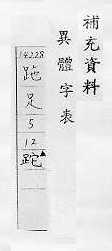 補充資料
異體字表
14228
跎
足
5
12
跎